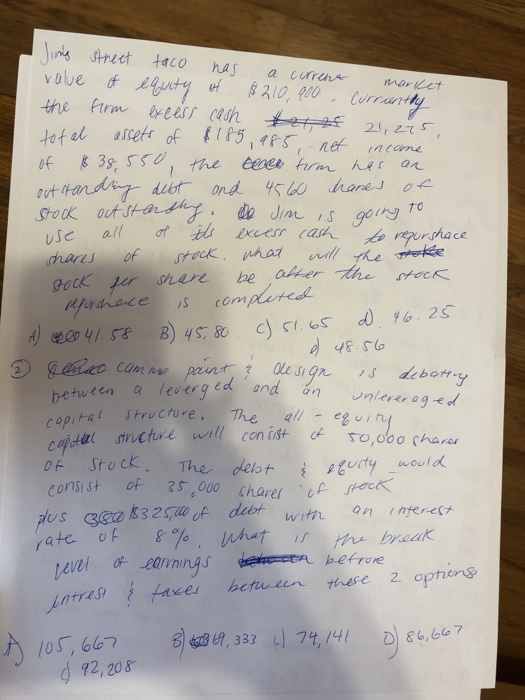 Jim's street taco has a current market
value of equity of $210,900. Currantly
the firm excess cash 21,275,
total assets of $185,985, net income
of $38,550, the firm has an
outstanding debt and 4560 shares of
stock outstanding. Jim is going to
use all of its excess cash to repurshace
shares of stock. what will the
stock per share be after the stock
repurshace is completed
A) 41.58 B) 45.80 C) 51.65 d. 46.25
d) 48.56
② cammo paint & design is debatting
between a leverged and an unlereraged
capital structure. The all-equity
capital structure will consist of 50,000 shares
of stock. The debt & equity would
consist of 35,000 shares of stock
plus $325,000 of debt with an interest
rate of 8%. What is the break
level of earnings befrore
intrest & taxes between these 2 options
A) 105,667 B) 69,333 C) 74,141 D) 86,667
d) 92,208